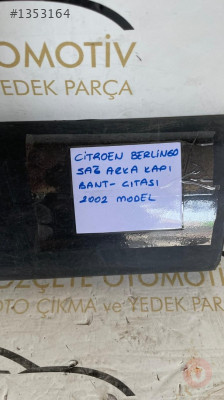 #1353164
OTOMOTİV
YEDEK PARÇA
CİTROEN BERLİNGO
SAĞ ARKA KAPI
BANT-CITASI
2002 MODEL
ÖZÇETE OTOMOTİ
OTO ÇIKMA ve YEDEK PAR